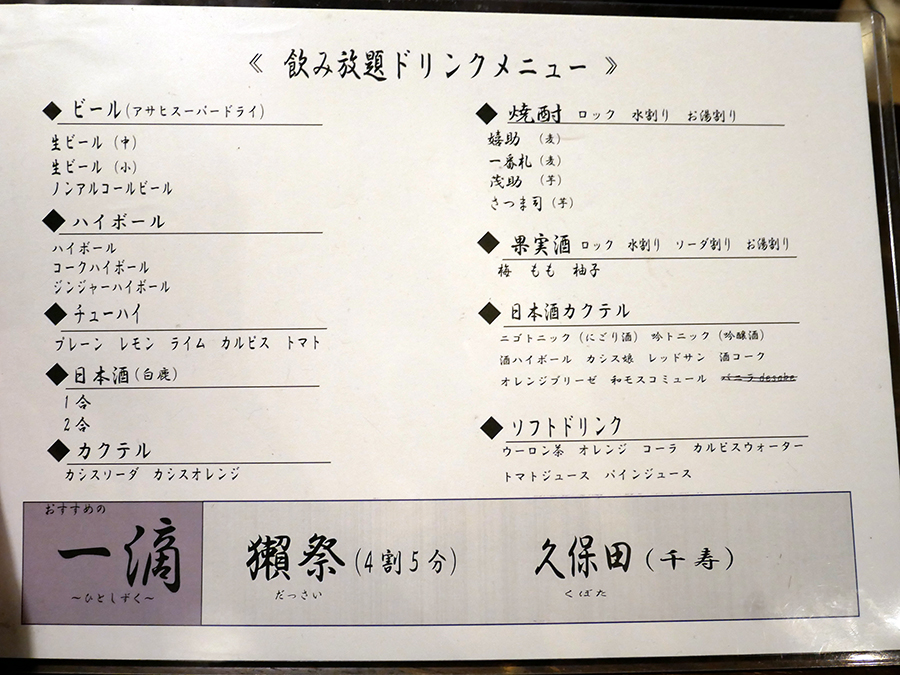 《 飲み放題ドリンクメニュー 》
◆ ビール(アサヒスーパードライ)
生ビール (中)
生ビール (小)
ノンアルコールビール
◆ ハイボール
ハイボール
コークハイボール
ジンジャーハイボール
◆ チューハイ
プレーン レモン ライム カルピス トマト
◆ 日本酒(白鹿)
1合
2合
◆ カクテル
カシスソーダ カシスオレンジ
◆ 焼酎 ロック 水割り お湯割り
嬉助 (麦)
一番札 (麦)
茂助 (芋)
さつま司 (芋)
◆ 果実酒 ロック 水割り ソーダ割り お湯割り
梅 もも 柚子
◆ 日本酒カクテル
ニゴトニック (にごり酒) 吟トニック (吟醸酒)
酒ハイボール カシス娘 レッドサン 酒コーク
オレンジブリーゼ 和モスコミュール バニラdesake
◆ ソフトドリンク
ウーロン茶 オレンジ コーラ カルピスウォーター
トマトジュース パインジュース
おすすめの
一滴
〜ひとしずく〜
獺祭(4割5分)
だっさい
久保田(千寿)
くぼた